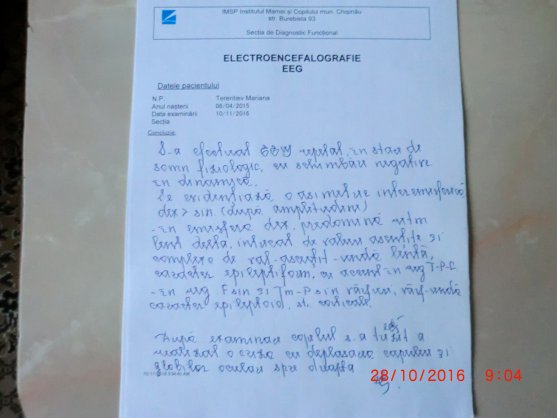 IMSP Institutul Mamei și Copilului mun. Chișinău
str. Burebista 93
Secția de Diagnostic Funcțional
ELECTROENCEFALOGRAFIE
EEG
Datele pacientului
N.P. Terentiev Mariana
Anul nașterii 08/04/2015
Data examinării 10/11/2016
Secția
Concluzie:
S-a efectuat EEG repetat, în stare de
somn fiziologic, cu schimbări negative
în dinamică.
Se evidențiază o asimetrie interemisferică
dex > sin (după amplitudini)
- În emisfera dex, predomină ritm
lent delta, intricat de valuri ascuțite și
complexe de vîrf-ascuțit-undă lentă,
caracter epileptiform, cu accent în reg T-P-
- în reg F sin și Tm-P sin vîrfuri, vîrf-undă
caracter epileptoid,
După examinare copilul s-a trezit a
realizat o criză cu deplasarea capului și
globilor oculari spre dreapta
28/10/2016 9:04